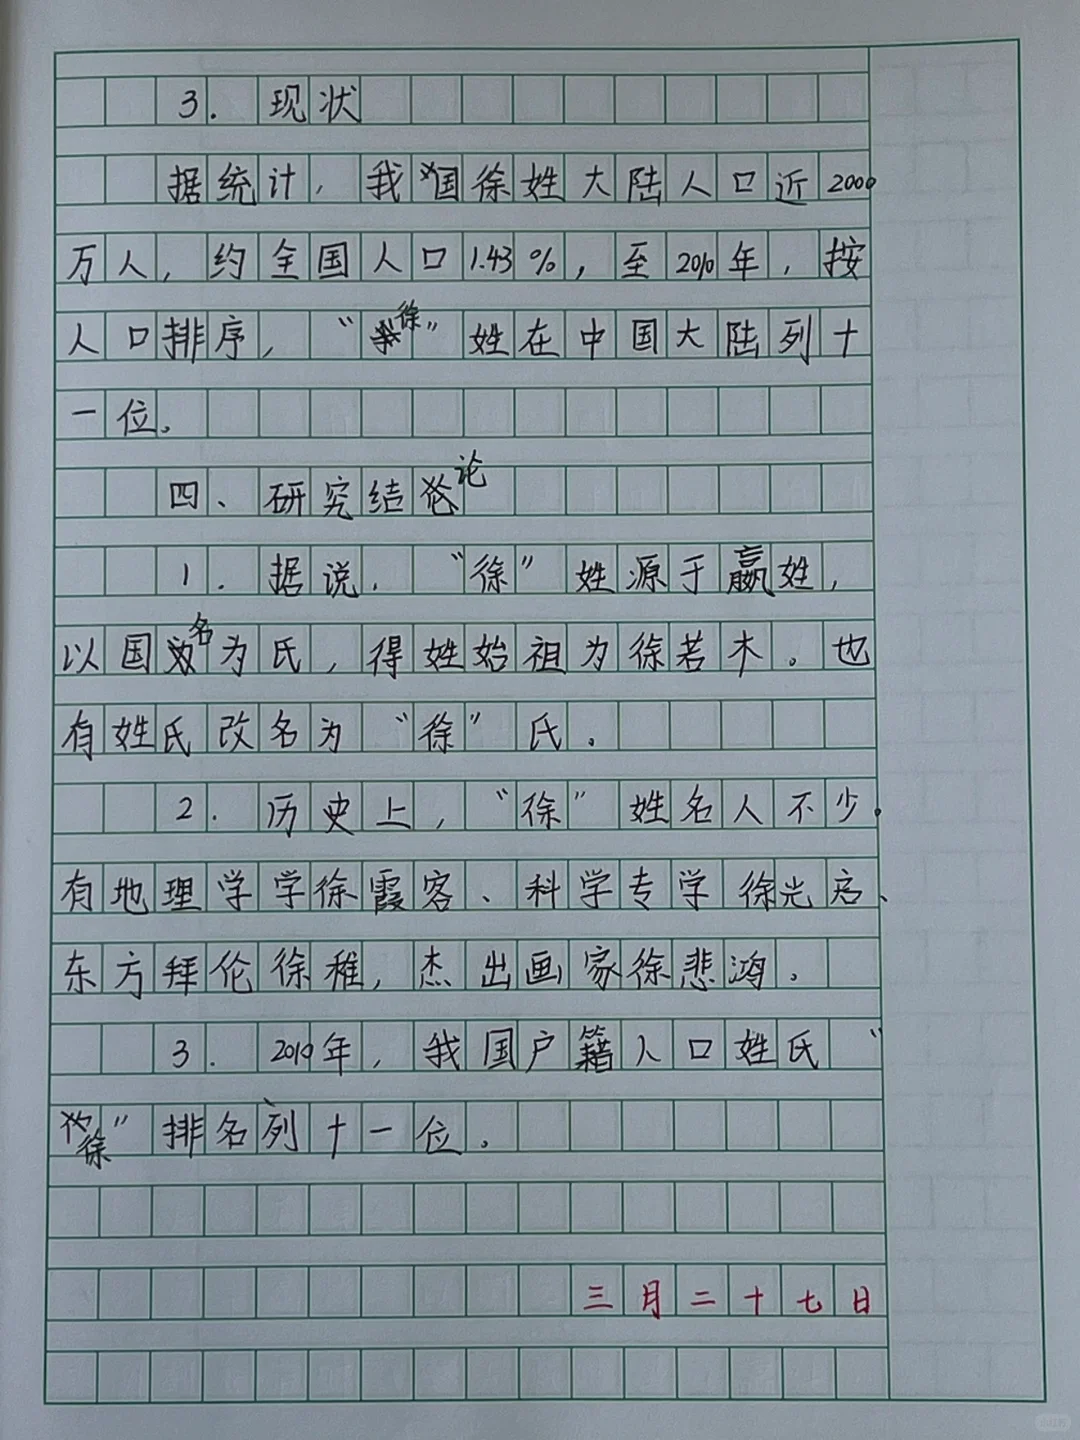 3.现状
据统计,我国徐姓大陆人口近2000
万人,约全国人口1.43%,至2010年,按
人口排序,“徐”姓在中国大陆列十
一位。
四、研究结论
1.据说,“徐”姓源于嬴姓,
以国名为氏,得姓始祖为徐若木。也
有姓氏改名为“徐”氏。
2.历史上,“徐”姓名人不少。
有地理学学徐霞客、科学专学徐光启、
东方拜伦徐稚,杰出画家徐悲鸿。
3.2019年,我国户籍人口姓氏“
徐”排名列十一位。
三月二十七日